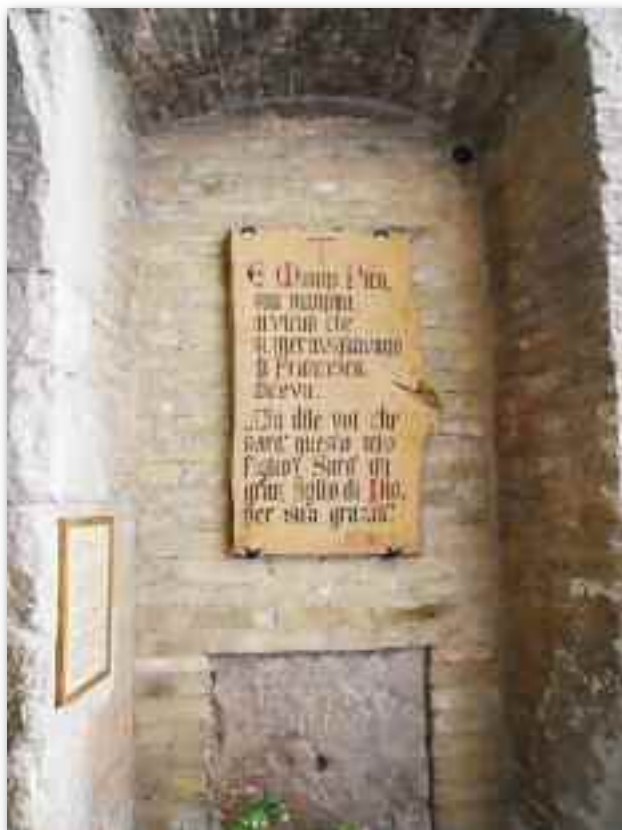 E Monna Pica,
sua mamma,
ai vicini che
si meravigliavano
di Francesco,
diceva:
"Su dite voi che
sarà questo mio
figlio? Sarà un
gran figlio di Dio,
per sua grazia".